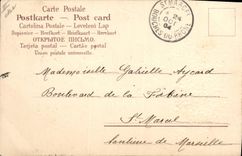 Carte Postale
Postkarte — Post card
Cartolina Postale — Levelező Lap
Dopisnice — Briefkaart — Brefkort
ОТКРЫТОЕ ПИСЬМО.
Tarjeta postal — Cartão postal
Union postale universelle.
24
OCT
04
Mademoiselle Gabrielle Aycard
Boulevard de la
St Marcel
banlieue de Marseille